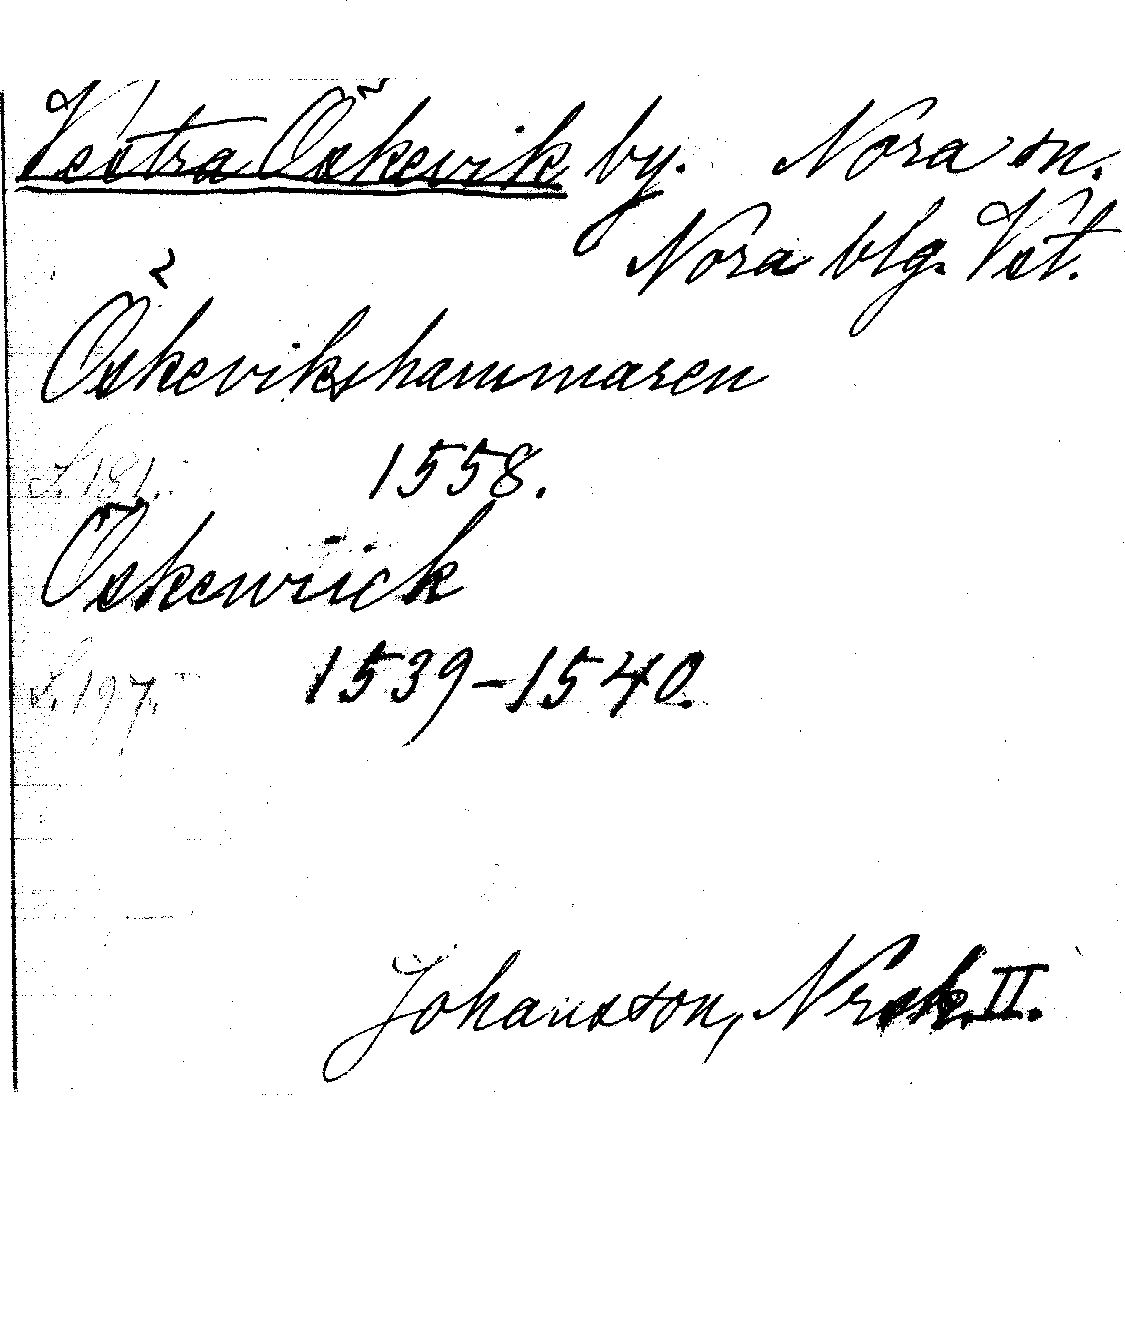 Vestra Öskevik by. Nora sn.
Nora blg. Vst.
Öskevikshammaren
S. 181. 1558.
Öskewiick
S. 197. 1539-1540.
Johansson, Nrsk. II.